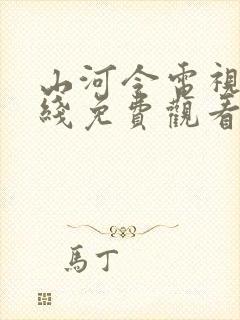 山河令電視
綫免費觀看
馬丁